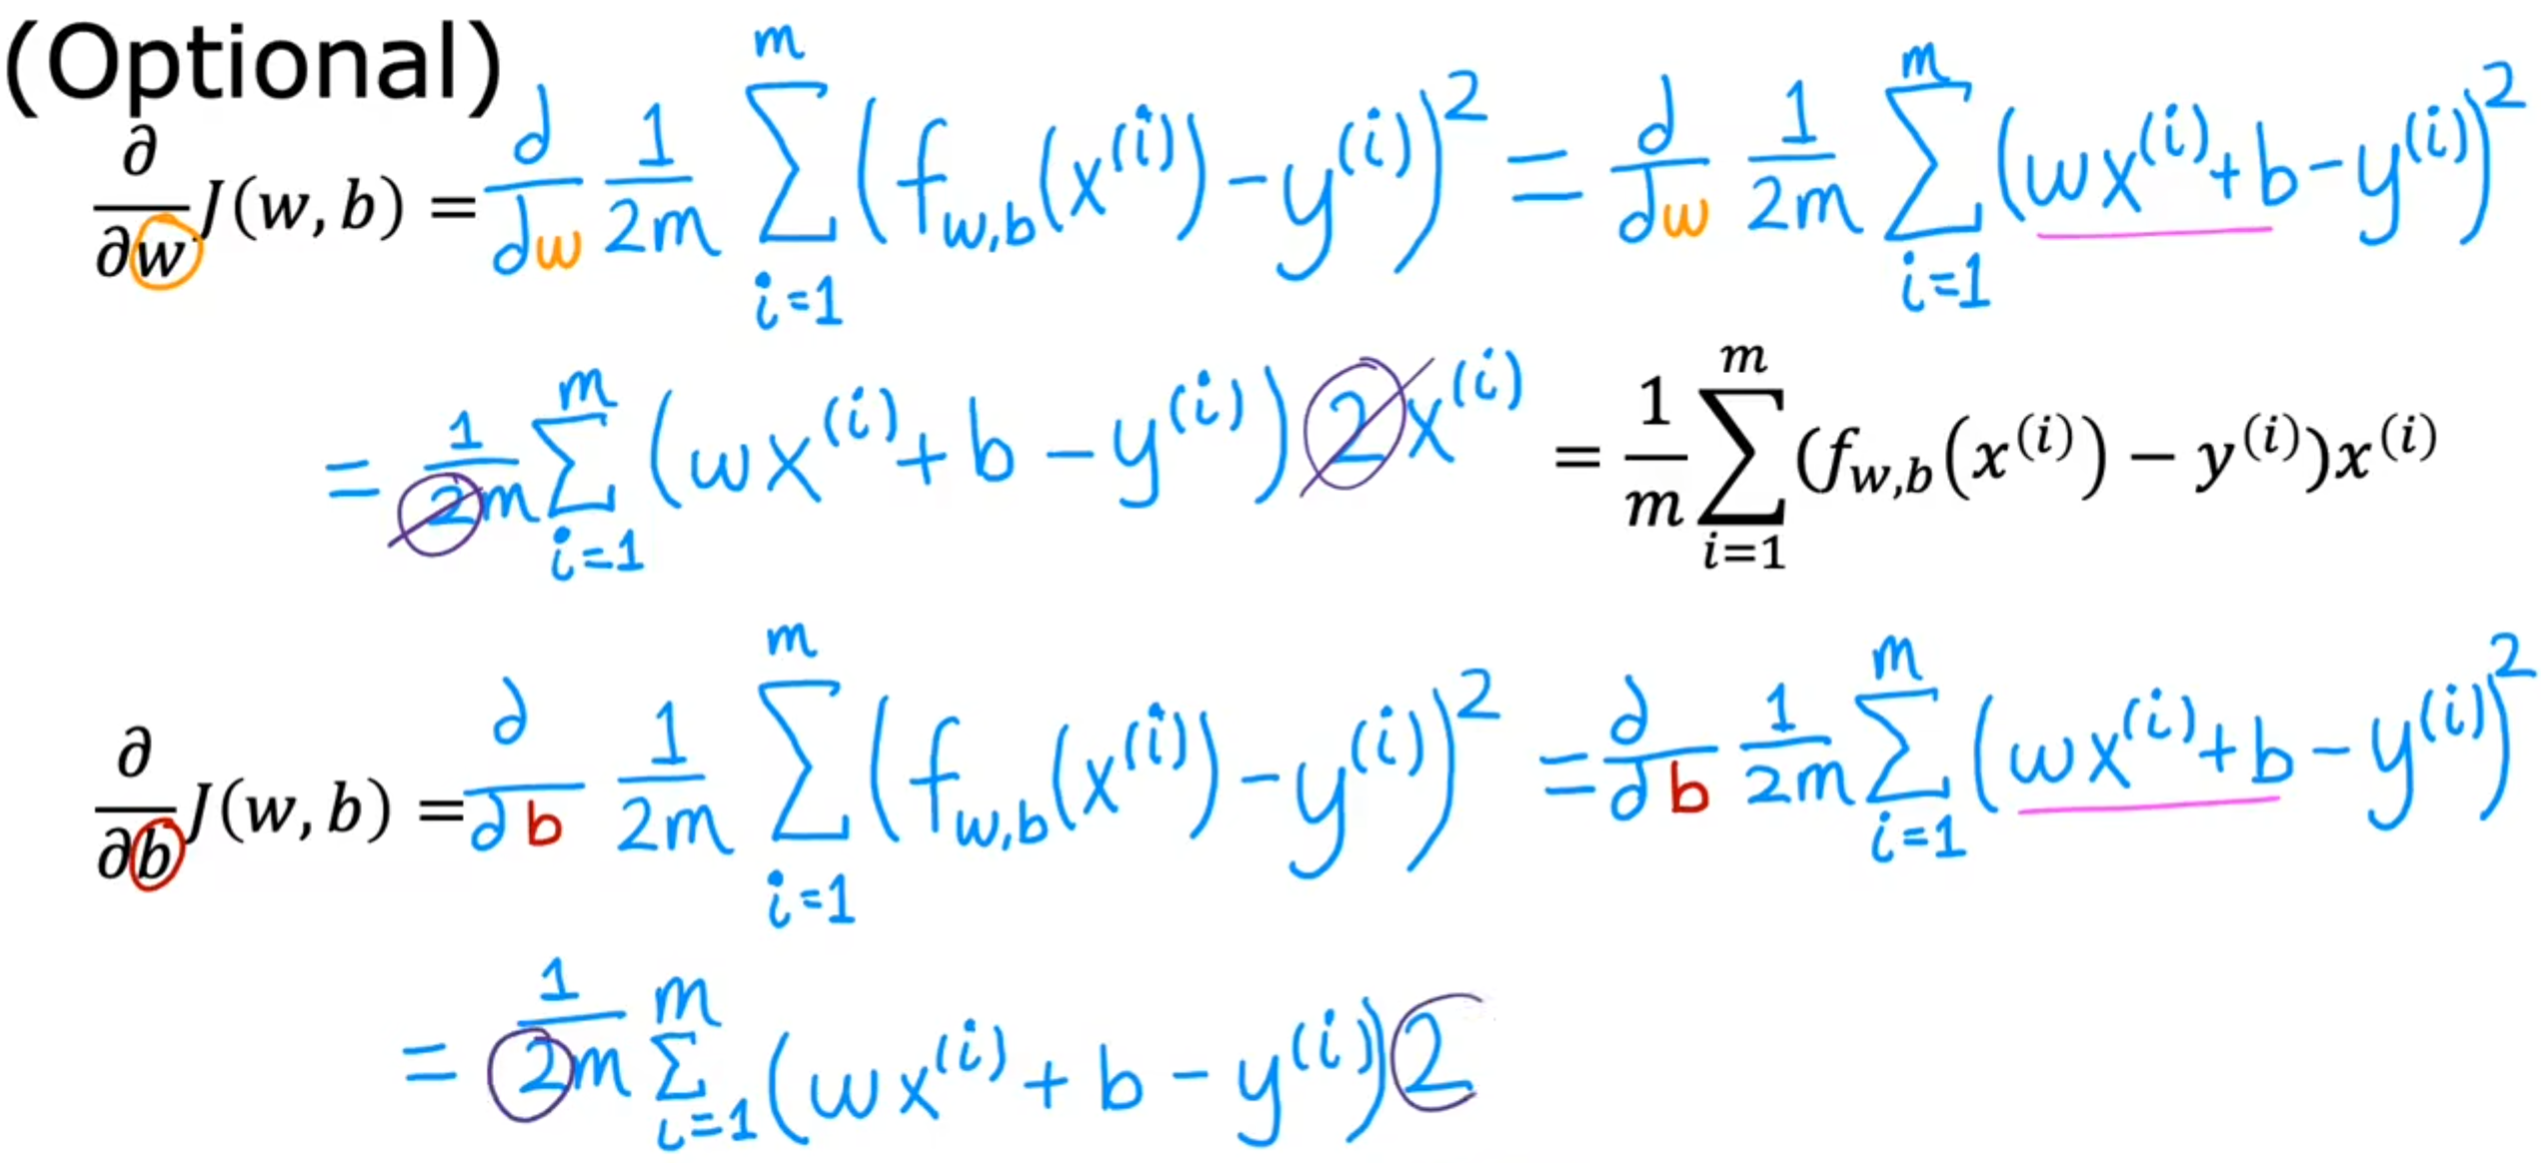 (Optional)
∂/∂w J(w, b) = d/dw 1/2m ∑_{i=1}^{m} (f_{w,b}(x^{(i)}) - y^{(i)})^2 = d/dw 1/2m ∑_{i=1}^{m} (wx^{(i)} + b - y^{(i)})^2
= 1/2m ∑_{i=1}^{m} (wx^{(i)} + b - y^{(i)}) 2x^{(i)} = 1/m ∑_{i=1}^{m} (f_{w,b}(x^{(i)}) − y^{(i)})x^{(i)}
∂/∂b J(w, b) = ∂/∂b 1/2m ∑_{i=1}^{m} (f_{w,b}(x^{(i)}) - y^{(i)})^2 = ∂/∂b 1/2m ∑_{i=1}^{m} (wx^{(i)} + b - y^{(i)})^2
= 1/2m ∑_{i=1}^{m} (wx^{(i)} + b - y^{(i)}) 2